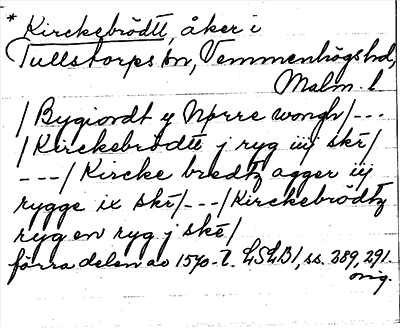 * Kirckebrödtt, åker i
Tullstorps sn, Vemmenhögs hd,
Malm. l
/Bygiordt y Nörre wongh/---
/Kirckebrödtt j ryg iiij skr/
---/Kircke bredtz agger iij
rygge ix skr/---/Kirckebrödtz
ryg en ryg j skr/
förra delen av 1570-t. LSLB1, ss. 289, 291.
orig.